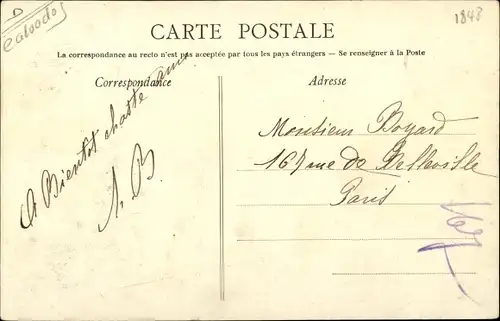 D
Calvados
1848
CARTE POSTALE
La correspondance au recto n'est pas acceptée par tous les pays étrangers — Se renseigner à la Poste
Correspondance
Adresse
A Bientot chatte amie
A. B
Monsieur Boyard
167 rue de Belleville
Paris
167